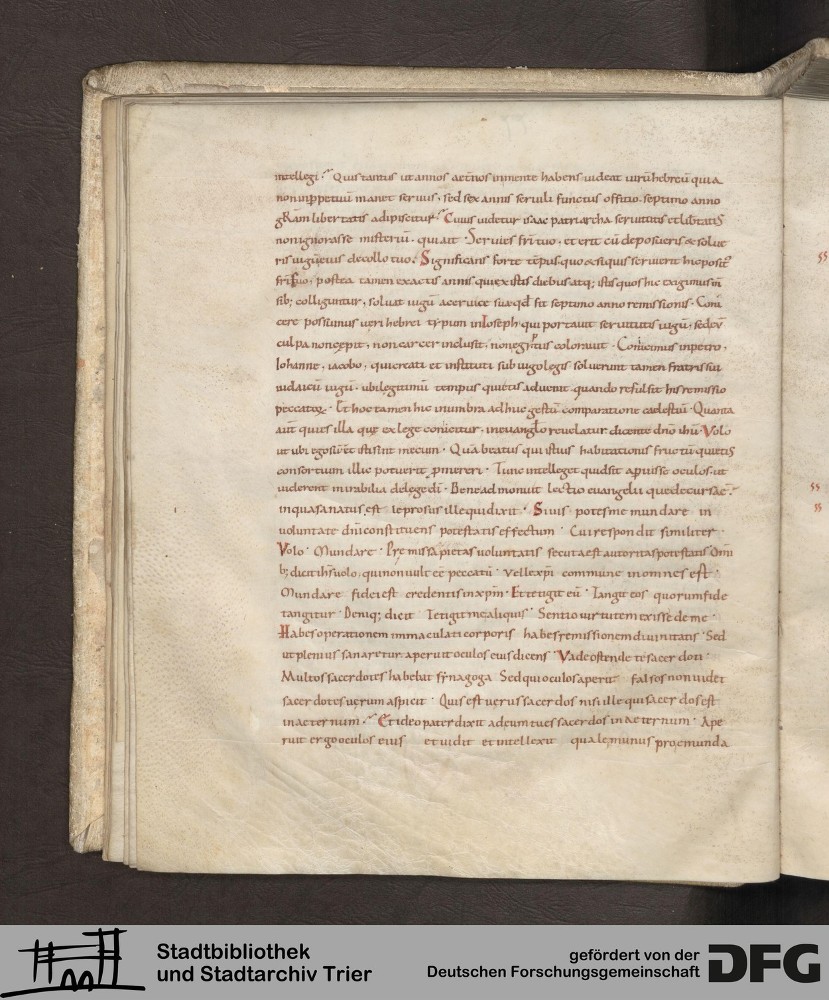 intellegi. Quis tantus ut annos aeternos in mente habens uideat uirū hebreū quia
non inppetuū manet seruus, sed sex annis seruili functus offitio septimo anno
gRam libertatis adipiscitur. Cuius uidetur isaac patriarcha seruitutis et
non ignorasse misteriū. qui ait. Seruies fri tuo, et erit cū deposueris & solue
ris iugū eius de collo tuo. Significans forte tēpus quo & siquis seruierit hic
postea tamen exactis annis quiexistis diebus atq; istis quos hic exigimus
sib; colliguntur, soluat iugū aceruice sua qd fit septimo anno remissionis. Coni
cere possumus ueri hebrei typum in Ioseph, qui portauit seruitutis iugū, sed eū
culpa non cepit, non carcer inclusit, colorauit. Conicimus inpetro,
Iohanne, iacobo, qui creati et instituti sub iugo legis soluerunt tamen fratris sui
iudaicū iugū. ubi legitimū tempus quietis aduenit quando refulsit his remissio
Et hoc tamen hic inumbra adhuc gestū comparatione caelestiū. Quanta
aut quies illa que ex lege conicitur, in euanglo reuelatur dicente dno ihu. Volo
ut ubi ego sū et isti sint mecum. Quā beatus qui istius habitationis fructū quietis
consortium illic potuerit pmereri. Tunc intelleget quid sit apuisse oculos. ut
uiderent mirabilia de lege di. Bene admonuit lectio euangelii que decursa ē.
inqua sanatus est leprosus ille qui dixit. Si uis potes me mundare in
uoluntate dni constituens potestatis effectum. Cui respondit similiter.
Volo. Mundare. Premissa pietas uoluntatis secuta est autoritas potestatis
b; dicit ihs uolo, qui non uult eē peccatū. Velle xpi commune in omnes est.
Mundare fidei est credentis inxpm. Et tetigit eū. Tangit eos quorum fide
tangitur. Deniq; dicit Tetigit me aliquis. Sentio uirtutem exisse de me.
Habes operationem immaculati corporis habes remissionem diuinitatis. Sed
ut plenius sanaretur aperuit oculos eius dicens. Vade ostende te sacerdoti.
Multos sacerdotes habebat synagoga Sed qui oculos aperit falsos non uidet
sacerdotes uerum aspicit. Quis est uerus sacerdos nisi ille qui sacerdos est
in aeternum. Et ideo pater dixit ad eum tu es sacerdos in aeternum. Ape
ruit ergo oculos eius et uidit et intellexit quale munus pro emunda
Stadtbibliothek
und Stadtarchiv Trier
gefördert von der
Deutschen Forschungsgemeinschaft
DFG